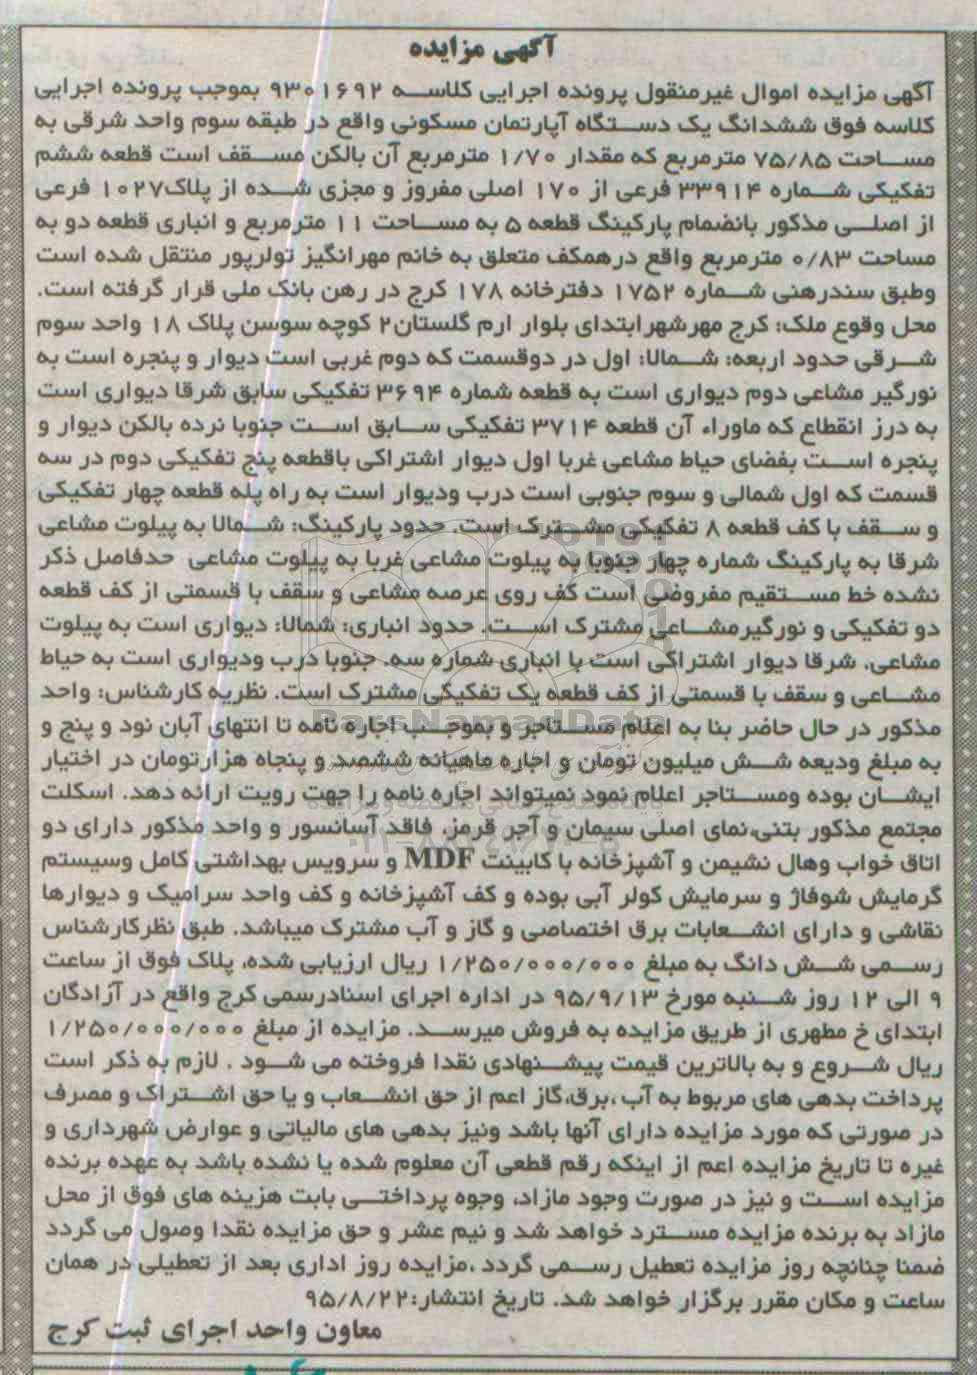 آگهی مزایده
آگهی مزایده اموال غیرمنقول پرونده اجرایی کلاسه ۹۳۰۱۶۹۲ بموجب پرونده اجرایی
کلاسه فوق ششدانگ یک دستگاه آپارتمان مسکونی واقع در طبقه سوم واحد شرقی به
مساحت ۷۵/۸۵ مترمربع که مقدار ۱/۷۰ مترمربع آن بالکن مسقف است قطعه ششم
تفکیکی شماره ۳۳۹۱۴ فرعی از ۱۷۰ اصلی مفروز و مجزی شده از پلاک۱۰۲۷ فرعی
از اصلی مذکور بانضمام پارکینگ قطعه ۵ به مساحت ۱۱ مترمربع و انباری قطعه دو به
مساحت ۰/۸۳ مترمربع واقع درهمکف متعلق به خانم مهرانگیز تولرپور منتقل شده است
وطبق سندرهنی شماره ۱۷۵۲ دفترخانه ۱۷۸ کرج در رهن بانک ملی قرار گرفته است.
محل وقوع ملک: کرج مهرشهرابتدای بلوار ارم گلستان۲ کوچه سوسن پلاک ۱۸ واحد سوم
شرقی حدود اربعه: شمالا: اول در دوقسمت که دوم غربی است دیوار و پنجره است به
نورگیر مشاعی دوم دیواری است به قطعه شماره ۳۶۹۴ تفکیکی سابق شرقا دیواری است
به درز انقطاع که ماوراء آن قطعه ۳۷۱۴ تفکیکی سابق است جنوبا نرده بالکن دیوار و
پنجره است بفضای حیاط مشاعی غربا اول دیوار اشتراکی باقطعه پنج تفکیکی دوم در سه
قسمت که اول شمالی و سوم جنوبی است درب ودیوار است به راه پله قطعه چهار تفکیکی
و سقف با کف قطعه ۸ تفکیکی مشترک است. حدود پارکینگ: شمالا به پیلوت مشاعی
شرقا به پارکینگ شماره چهار جنوبا به پیلوت مشاعی غربا به پیلوت مشاعی حدفاصل ذکر
نشده خط مستقیم مفروضی است کف روی عرصه مشاعی و سقف با قسمتی از کف قطعه
دو تفکیکی و نورگیرمشاعی مشترک است. حدود انباری: شمالا: دیواری است به پیلوت
مشاعی. شرقا دیوار اشتراکی است با انباری شماره سه. جنوبا درب ودیواری است به حیاط
مشاعی و سقف با قسمتی از کف قطعه یک تفکیکی مشترک است. نظریه کارشناس: واحد
مذکور در حال حاضر بنا به اعلام مستاجر و بموجب اجاره نامه تا انتهای آبان نود و پنج و
به مبلغ ودیعه شش میلیون تومان و اجاره ماهیانه ششصد و پنجاه هزارتومان در اختیار
ایشان بوده ومستاجر اعلام نمود نمیتواند اجاره نامه را جهت رویت ارائه دهد. اسکلت
مجتمع مذکور بتنی،نمای اصلی سیمان و آجر قرمز، فاقد آسانسور و واحد مذکور دارای دو
اتاق خواب وهال نشیمن و آشپزخانه با کابینت MDF و سرویس بهداشتی کامل وسیستم
گرمایش شوفاژ و سرمایش کولر آبی بوده و کف آشپزخانه و کف واحد سرامیک و دیوارها
نقاشی و دارای انشعابات برق اختصاصی و گاز و آب مشترک میباشد. طبق نظرکارشناس
رسمی شش دانگ به مبلغ ۱/۲۵۰/۰۰۰/۰۰۰ ریال ارزیابی شده، پلاک فوق از ساعت
۹ الی ۱۲ روز شنبه مورخ ۹۵/۹/۱۳ در اداره اجرای اسنادرسمی کرج واقع در آزادگان
ابتدای خ مطهری از طریق مزایده به فروش میرسد. مزایده از مبلغ ۱/۲۵۰/۰۰۰/۰۰۰
ریال شروع و به بالاترین قیمت پیشنهادی نقدا فروخته می شود . لازم به ذکر است
پرداخت بدهی های مربوط به آب ،برق،گاز اعم از حق انشعاب و یا حق اشتراک و مصرف
در صورتی که مورد مزایده دارای آنها باشد ونیز بدهی های مالیاتی و عوارض شهرداری و
غیره تا تاریخ مزایده اعم از اینکه رقم قطعی آن معلوم شده یا نشده باشد به عهده برنده
مزایده است و نیز در صورت وجود مازاد، وجوه پرداختی بابت هزینه های فوق از محل
مازاد به برنده مزایده مسترد خواهد شد و نیم عشر و حق مزایده نقدا وصول می گردد
ضمنا چنانچه روز مزایده تعطیل رسمی گردد ،مزایده روز اداری بعد از تعطیلی در همان
ساعت و مکان مقرر برگزار خواهد شد. تاریخ انتشار:۹۵/۸/۲۲
معاون واحد اجرای ثبت کرج